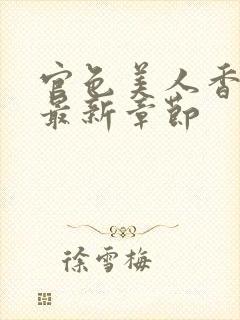 官色美人香
最新章节
徐雪梅